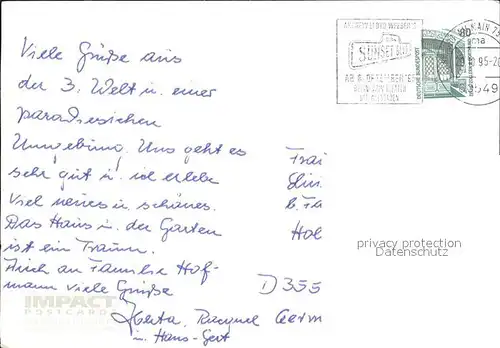 Viele Grüße aus
der 3. Welt u. einer
paradiesischen
Umgebung. Uns geht es
sehr gut u. ich erlebe
viel neues u. schönes.
Das Haus u. der Garten
ist ein Traum.
Auch an Familie Hof-
mann viele Grüße
Herta, Racquel
u. Hans-Gert
Hol
D 355
SUNSET
80
DEUTSCHE BUNDESPOST
95-20
549
privacy protection
Datenschutz
IMPACT
POSTCARD